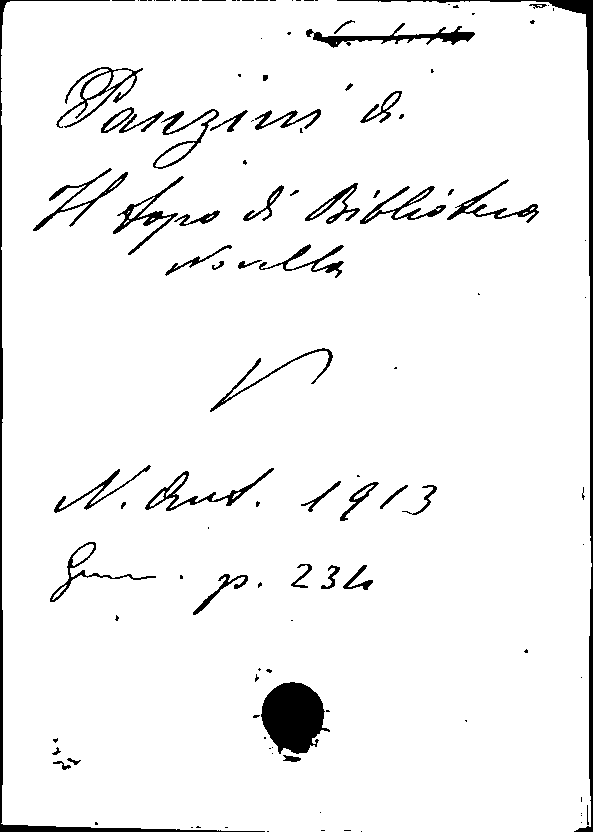 Panzini A.
Il topo di Biblioteca
Novella
N. Ant. 1913
p. 234